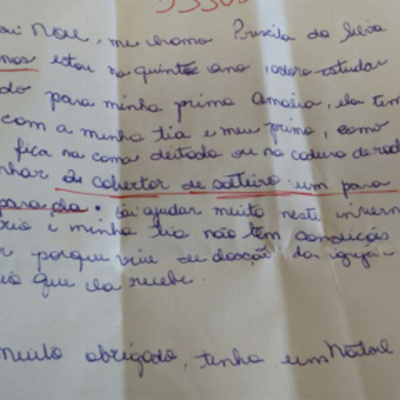 ai Noel, me chamo Priscila da Silva
nos estou no quinto ano, adoro estudar
do para minha prima Amaira, ela tem
com a minha tia e meu primo, como
fica na cama deitada ou na cadeira de rod
nhar de cobertor de solteiro um para
para ela. Vai ajudar muito neste invern
rio e minha tia não tem condiçõis
r porque vive de doação da igreja
que ela recebe.
muito obrigado, tenha um Natal